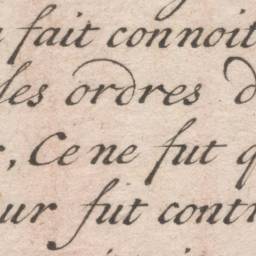 fait connoit
les ordres d
, Ce ne fut q
ur fut contr